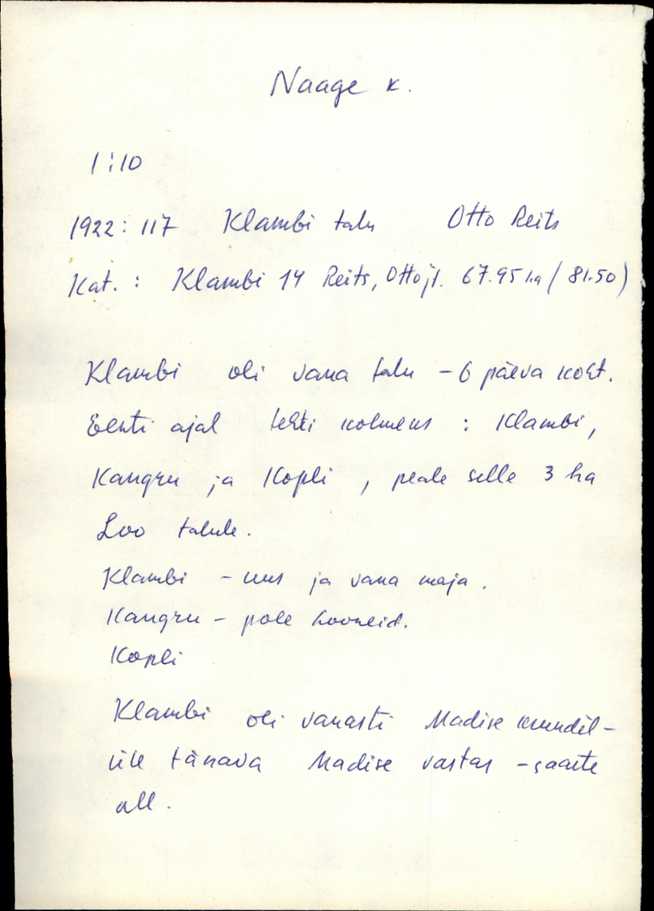 Naage k.
1:10
1922: 117 Klambi talu Otto Reits
Kat.: Klambi 14 Reits, Otto jt. 67.95 ha (81.50)
Klambi oli vana talu - 6 päeva koht.
Eesti ajal tehti kolmeks : Klambi,
Kangru ja Kopli, peale selle 3 ha
Loo talule.
Klambi - uus ja vana maja.
Kangru - pole hooneid.
Kopli
Klambi oli vanasti Madise krundil -
üle tänava Madise vastas - saarte
all.